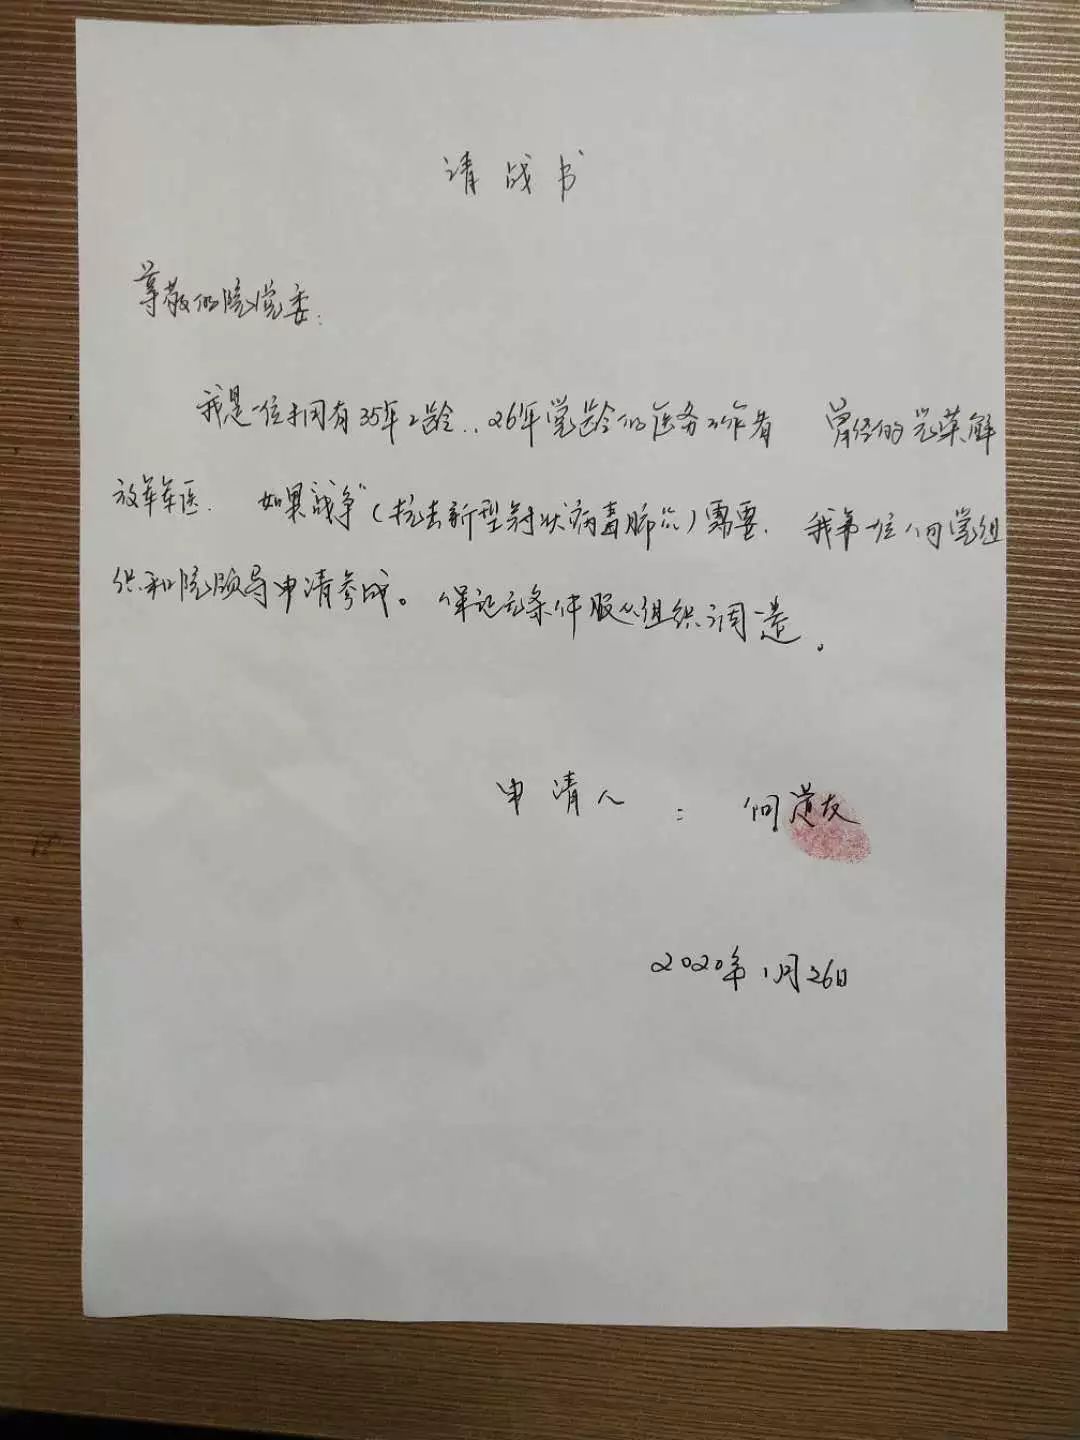 请战书
尊敬的院党委:
我是一位拥有35年工龄..26年党龄的医务工作者 曾经的光荣解
放军军医. 如果战争(抗击新型冠状病毒肺炎)需要. 我第一位向党组
织和院领导申请参战。保证无条件服从组织调遣。
申请人 : 何道友
2020年1月26日